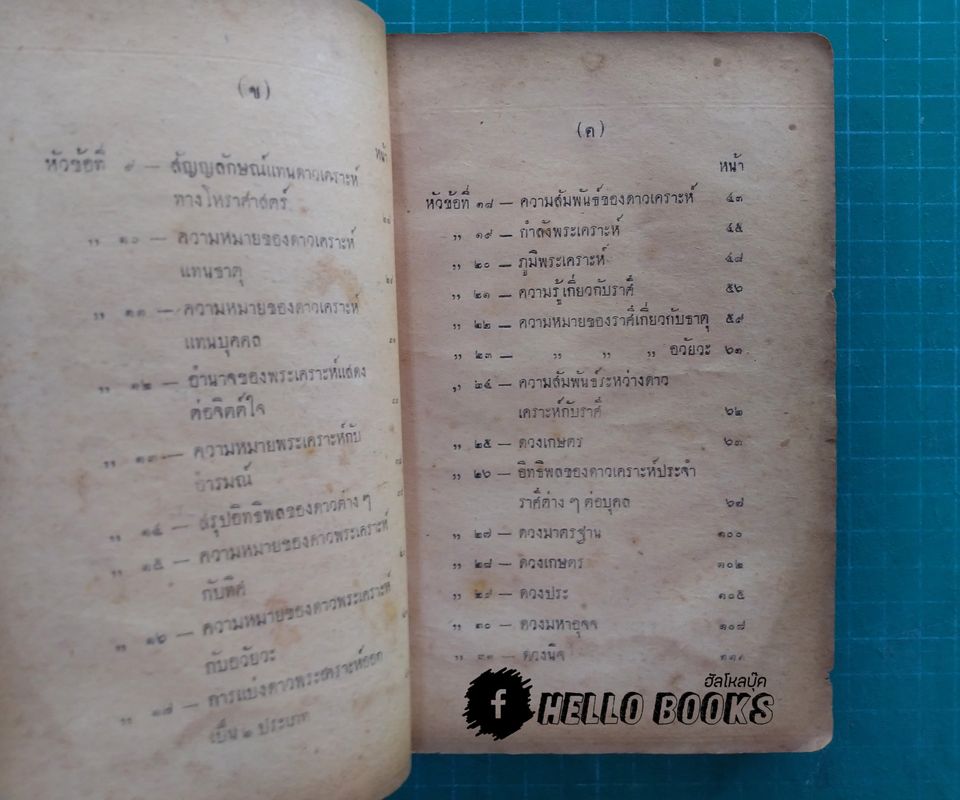 (ข)
หน้า
หัวข้อที่ ๙ — สัญญลักษณ์แทนดาวเคราะห์
ทางโหราศาสตร์
„ ๑๐ — ความหมายของดาวเคราะห์
แทนธาตุ
„ ๑๑ — ความหมายของดาวเคราะห์
แทนบุคคล
„ ๑๒ — อำนาจของพระเคราะห์แสดง
ต่อจิตต์ใจ
„ ๑๓ — ความหมายพระเคราะห์กับ
อารมณ์
„ ๑๔ — สรุปอิทธิพลของดาวต่าง ๆ
„ ๑๕ — ความหมายของดาวพระเคราะห์
กับทิศ
„ ๑๖ — ความหมายของดาวพระเคราะห์
กับอวัยวะ
„ ๑๗ — การแบ่งดาวพระเคราะห์ออก
เป็น ๒ ประเภท
(ค)
หน้า
หัวข้อที่ ๑๘ — ความสัมพันธ์ของดาวเคราะห์ ๔๓
„ ๑๙ — กำลังพระเคราะห์ ๔๕
„ ๒๐ — ภูมิพระเคราะห์ ๔๘
„ ๒๑ — ความรู้เกี่ยวกับราศี ๕๖
„ ๒๒ — ความหมายของราศีเกี่ยวกับธาตุ ๕๙
„ ๒๓ — „ „ „ อวัยวะ ๖๑
„ ๒๔ — ความสัมพันธ์ระหว่างดาว
เคราะห์กับราศี ๖๒
„ ๒๕ — ดวงเกษตร ๖๓
„ ๒๖ — อิทธิพลของดาวเคราะห์ประจำ
ราศีต่าง ๆ ต่อบุคล ๖๘
„ ๒๗ — ดวงมาตรฐาน ๑๐๐
„ ๒๘ — ดวงเกษตร ๑๐๒
„ ๒๙ — ดวงประ ๑๐๕
„ ๓๐ — ดวงมหาอุจจ ๑๐๘
„ ๓๑ — ดวงนิจ
ฮัลโหลบุ๊ค
f HELLO BOOKS